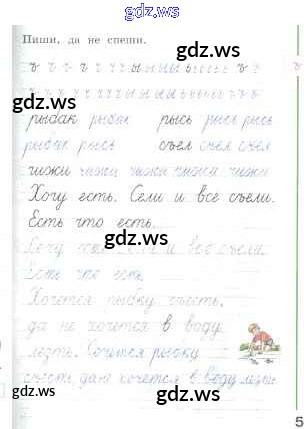 gdz.ws
Пиши, да не спеши.
gdz.ws
ъ ъ ъ ъ
рыбак рыбак рысь рысь рысь
рыбак рысь съел съел съел
gdz.ws
чижи чижи чижи чижи
Хочу есть. Сели и все съели.
Есть что есть.
gdz.ws
Хочу есть. Сели и все съели.
Есть что есть.
Хочется рыбку съесть,
да не хочется в воду
лезть. Хочется рыбку
съесть, да не хочется в воду лезть
gdz.ws
5